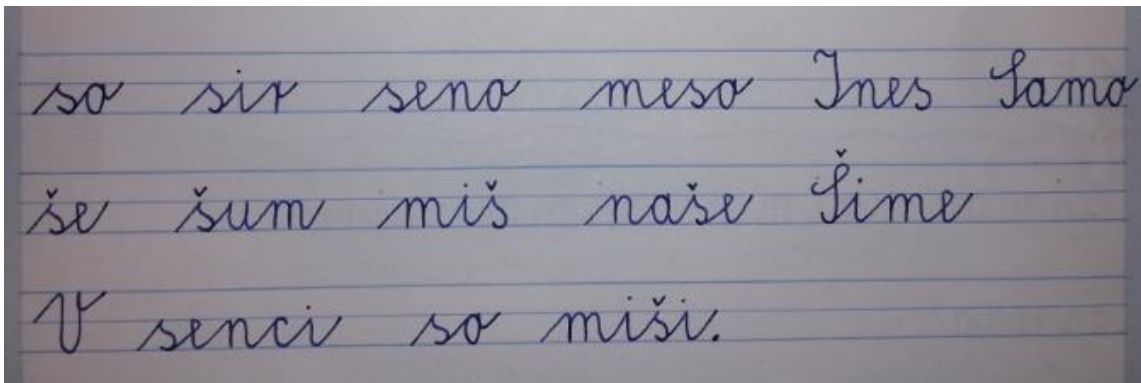 so sir seno meso Ines Samo
še šum miš naše Šime
V senci so miši.